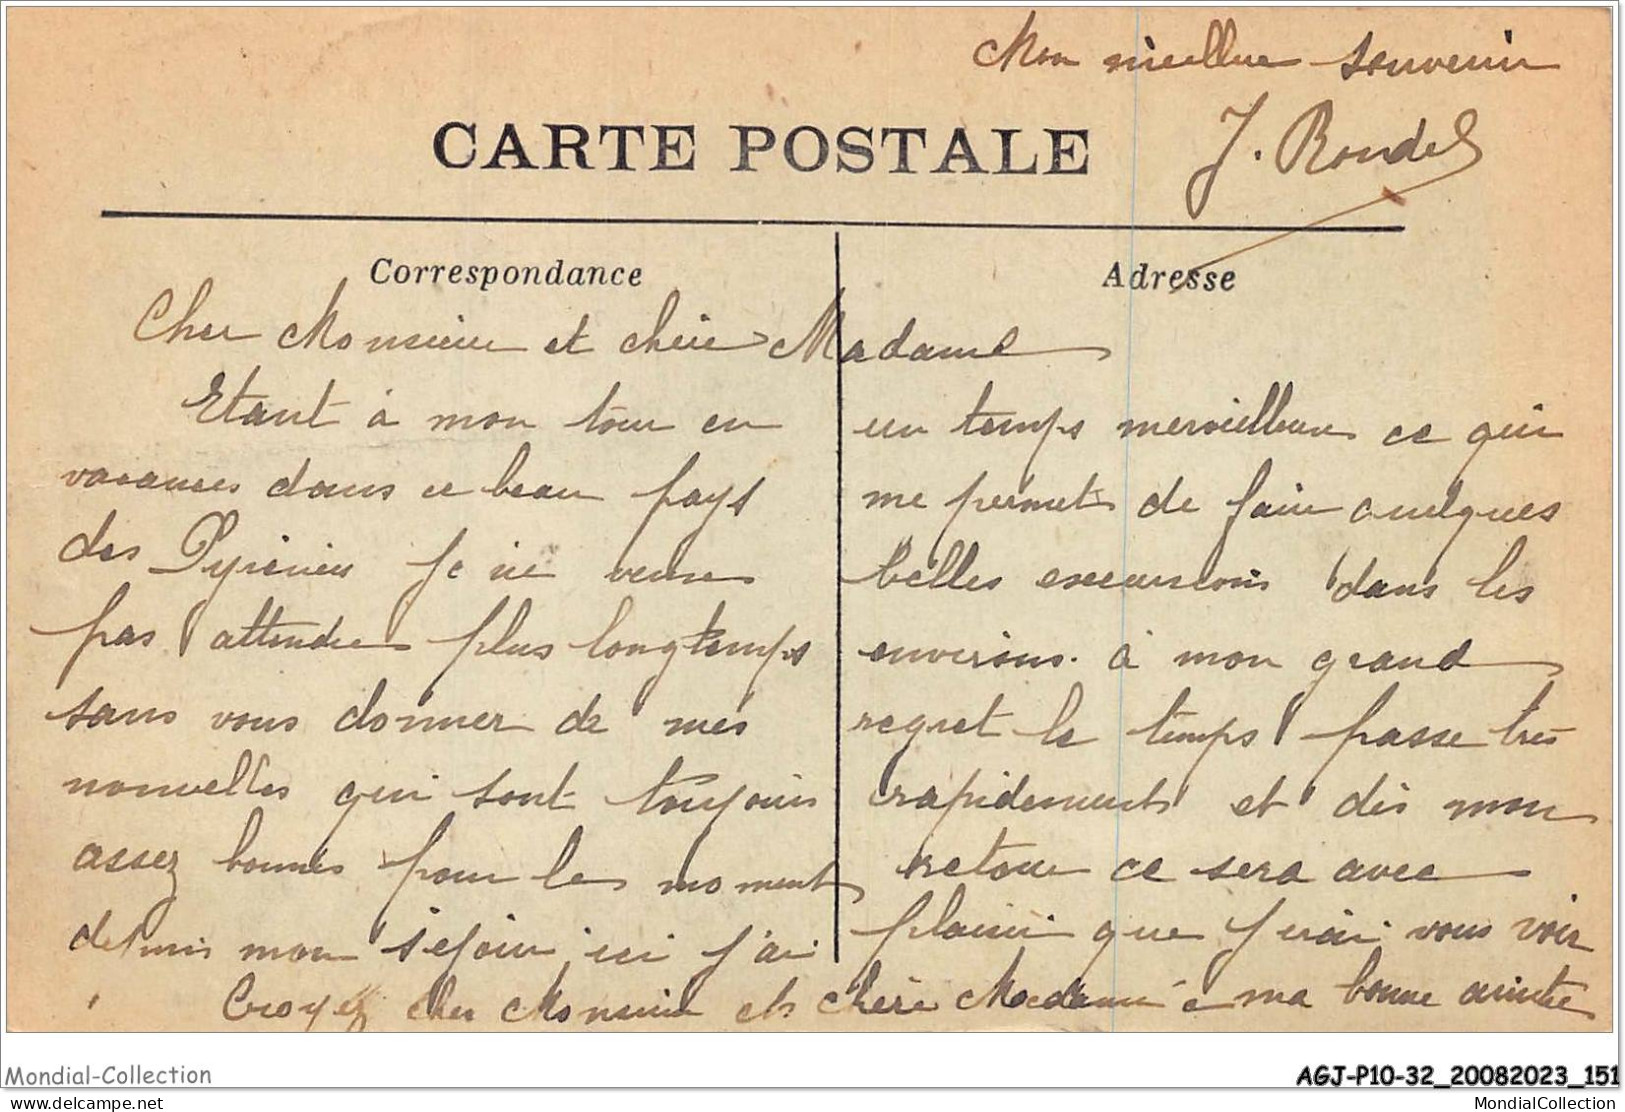 Mon meilleur souvenir
J. Rondel
CARTE POSTALE
Correspondance
Adresse
Cher Monsieur et chère Madame
Etant à mon tour en
vacances dans ce beau pays
des Pyrénées je ne veux
pas attendre plus longtemps
sans vous donner de mes
nouvelles qui sont toujours
assez bonnes pour le moment
depuis mon séjour ici j'ai
un temps merveilleux ce qui
me permet de faire quelques
belles excursions dans les
environs. à mon grand
regret le temps passe très
rapidement et dès mon
retour ce sera avec
plaisir que j'irai vous voir
Croyez cher Monsieur et chère Madame à ma bonne amitié
Mondial-Collection
AGJ-P10-32_20082023_151
www.delcampe.net
MondialCollection